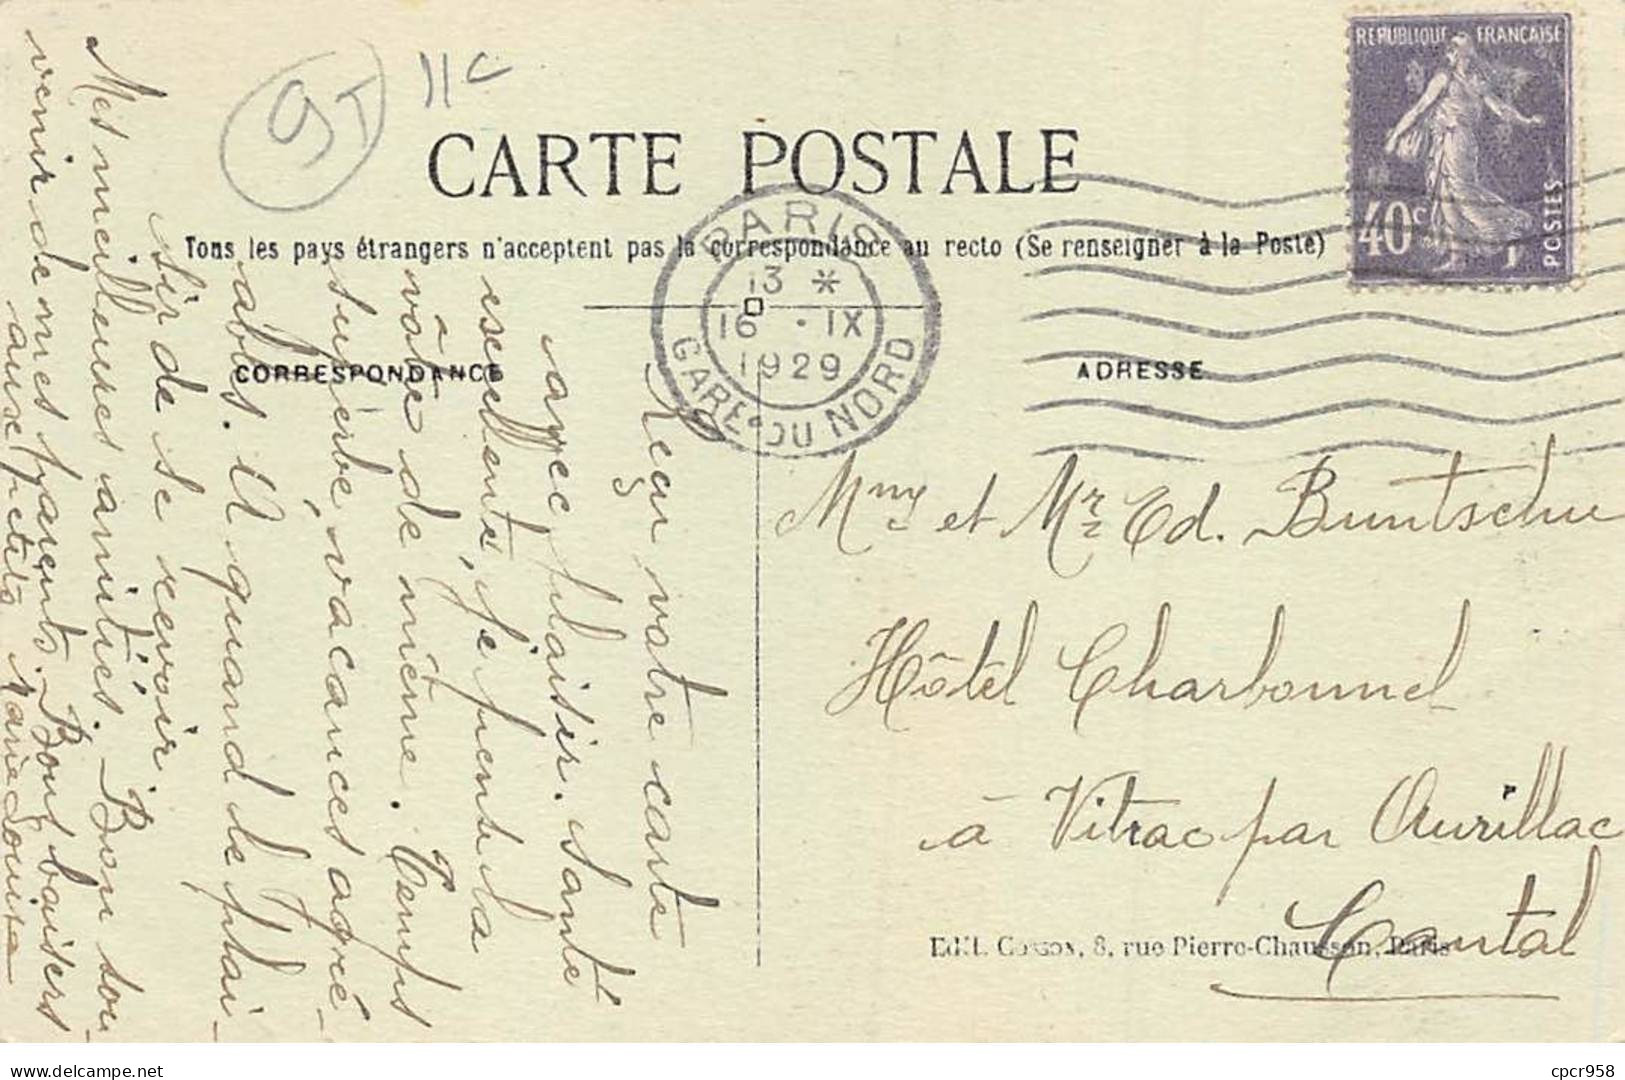 95
11c
CARTE POSTALE
Tous les pays étrangers n'acceptent pas la correspondance au recto (Se renseigner à la Poste)
CORRESPONDANCE
ADRESSE
REPUBLIQUE FRANÇAISE
40c
POSTES
PARIS
13 *
16 · IX
1929
GARE DU NORD
Reçu votre carte
avec plaisir. Santé
excellente, je pense la
vôtre de même. Temps
superbe, vacances agré-
ables. A quand le plai-
sir de se revoir,
Mes meilleures amitiés. Bon sou-
venir de mes parents. Bons baisers
aux petits Marie Louise
Mme et Mr Ed. Buntschu
Hôtel Charbonnel
à Vitrac par Aurillac
Cantal
Edit. 8, rue Pierre-Chausson, Paris
cpcr958